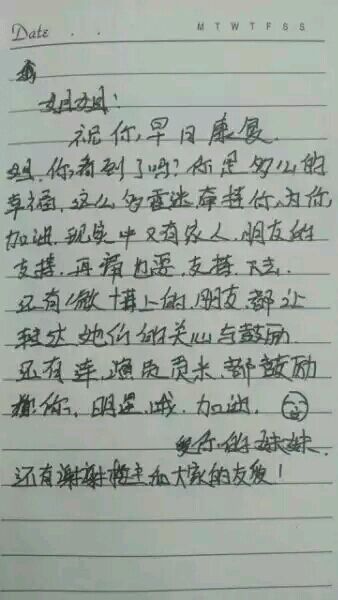 Date
M T W T F S S
姐姐:
祝你,早日康复.
姐,你,看到了吗?你是多么的
幸福,这么多雷迷牵挂你,为你
加油,现实中又有家人.朋友的
支持.再痛也要,支持下去.
还有微博上的朋友都让
转达她们的关心与鼓励
还有连 都鼓励
你, 哦.加油.
爱你的妹妹.
还有谢谢楼主和大家的友爱!